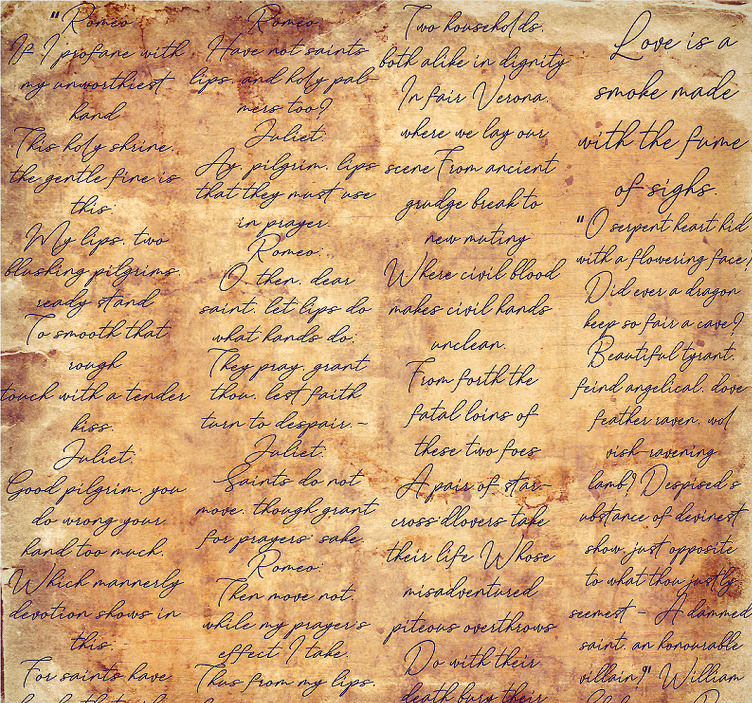 "Romeo:
If I profane with
my unworthiest
hand
This holy shrine,
the gentle fine is
this:
My lips, two
blushing pilgrims,
ready stand
To smooth that
rough
touch with a tender
kiss.
Juliet:
Good pilgrim, you
do wrong your
hand too much,
Which mannerly
devotion shows in
this:
For saints have
Romeo:
Have not saints
lips, and holy pal-
mers too?
Juliet:
Ay, pilgrim, lips
that they must use
in prayer.
Romeo:
O then, dear
saint, let lips do
what hands do:
They pray, grant
thou, lest faith
turn to despair.-
Juliet:
Saints do not
move, though grant
for prayers' sake.
Romeo:
Then move not
while my prayer's
effect I take.
Thus from my lips,
Two households,
both alike in dignity
In fair Verona,
where we lay our
scene From ancient
grudge break to
new mutiny
Where civil blood
makes civil hands
unclean.
From forth the
fatal loins of
these two foes
A pair of star-
cross'dlovers take
their life Whose
misadventured
piteous overthrows
Do with their
death bury their
Love is a
smoke made
with the fume
of sighs.
"O serpent heart hid
with a flowering face!
Did ever a dragon
keep so fair a cave?
Beautiful tyrant,
feind angelical, dove
feather raven, wol
vish-ravening
lamb! Despised s
ubstance of devinest
show, just opposite
to what thou justly
seemest - A damned
saint, an honourable
villain!" William